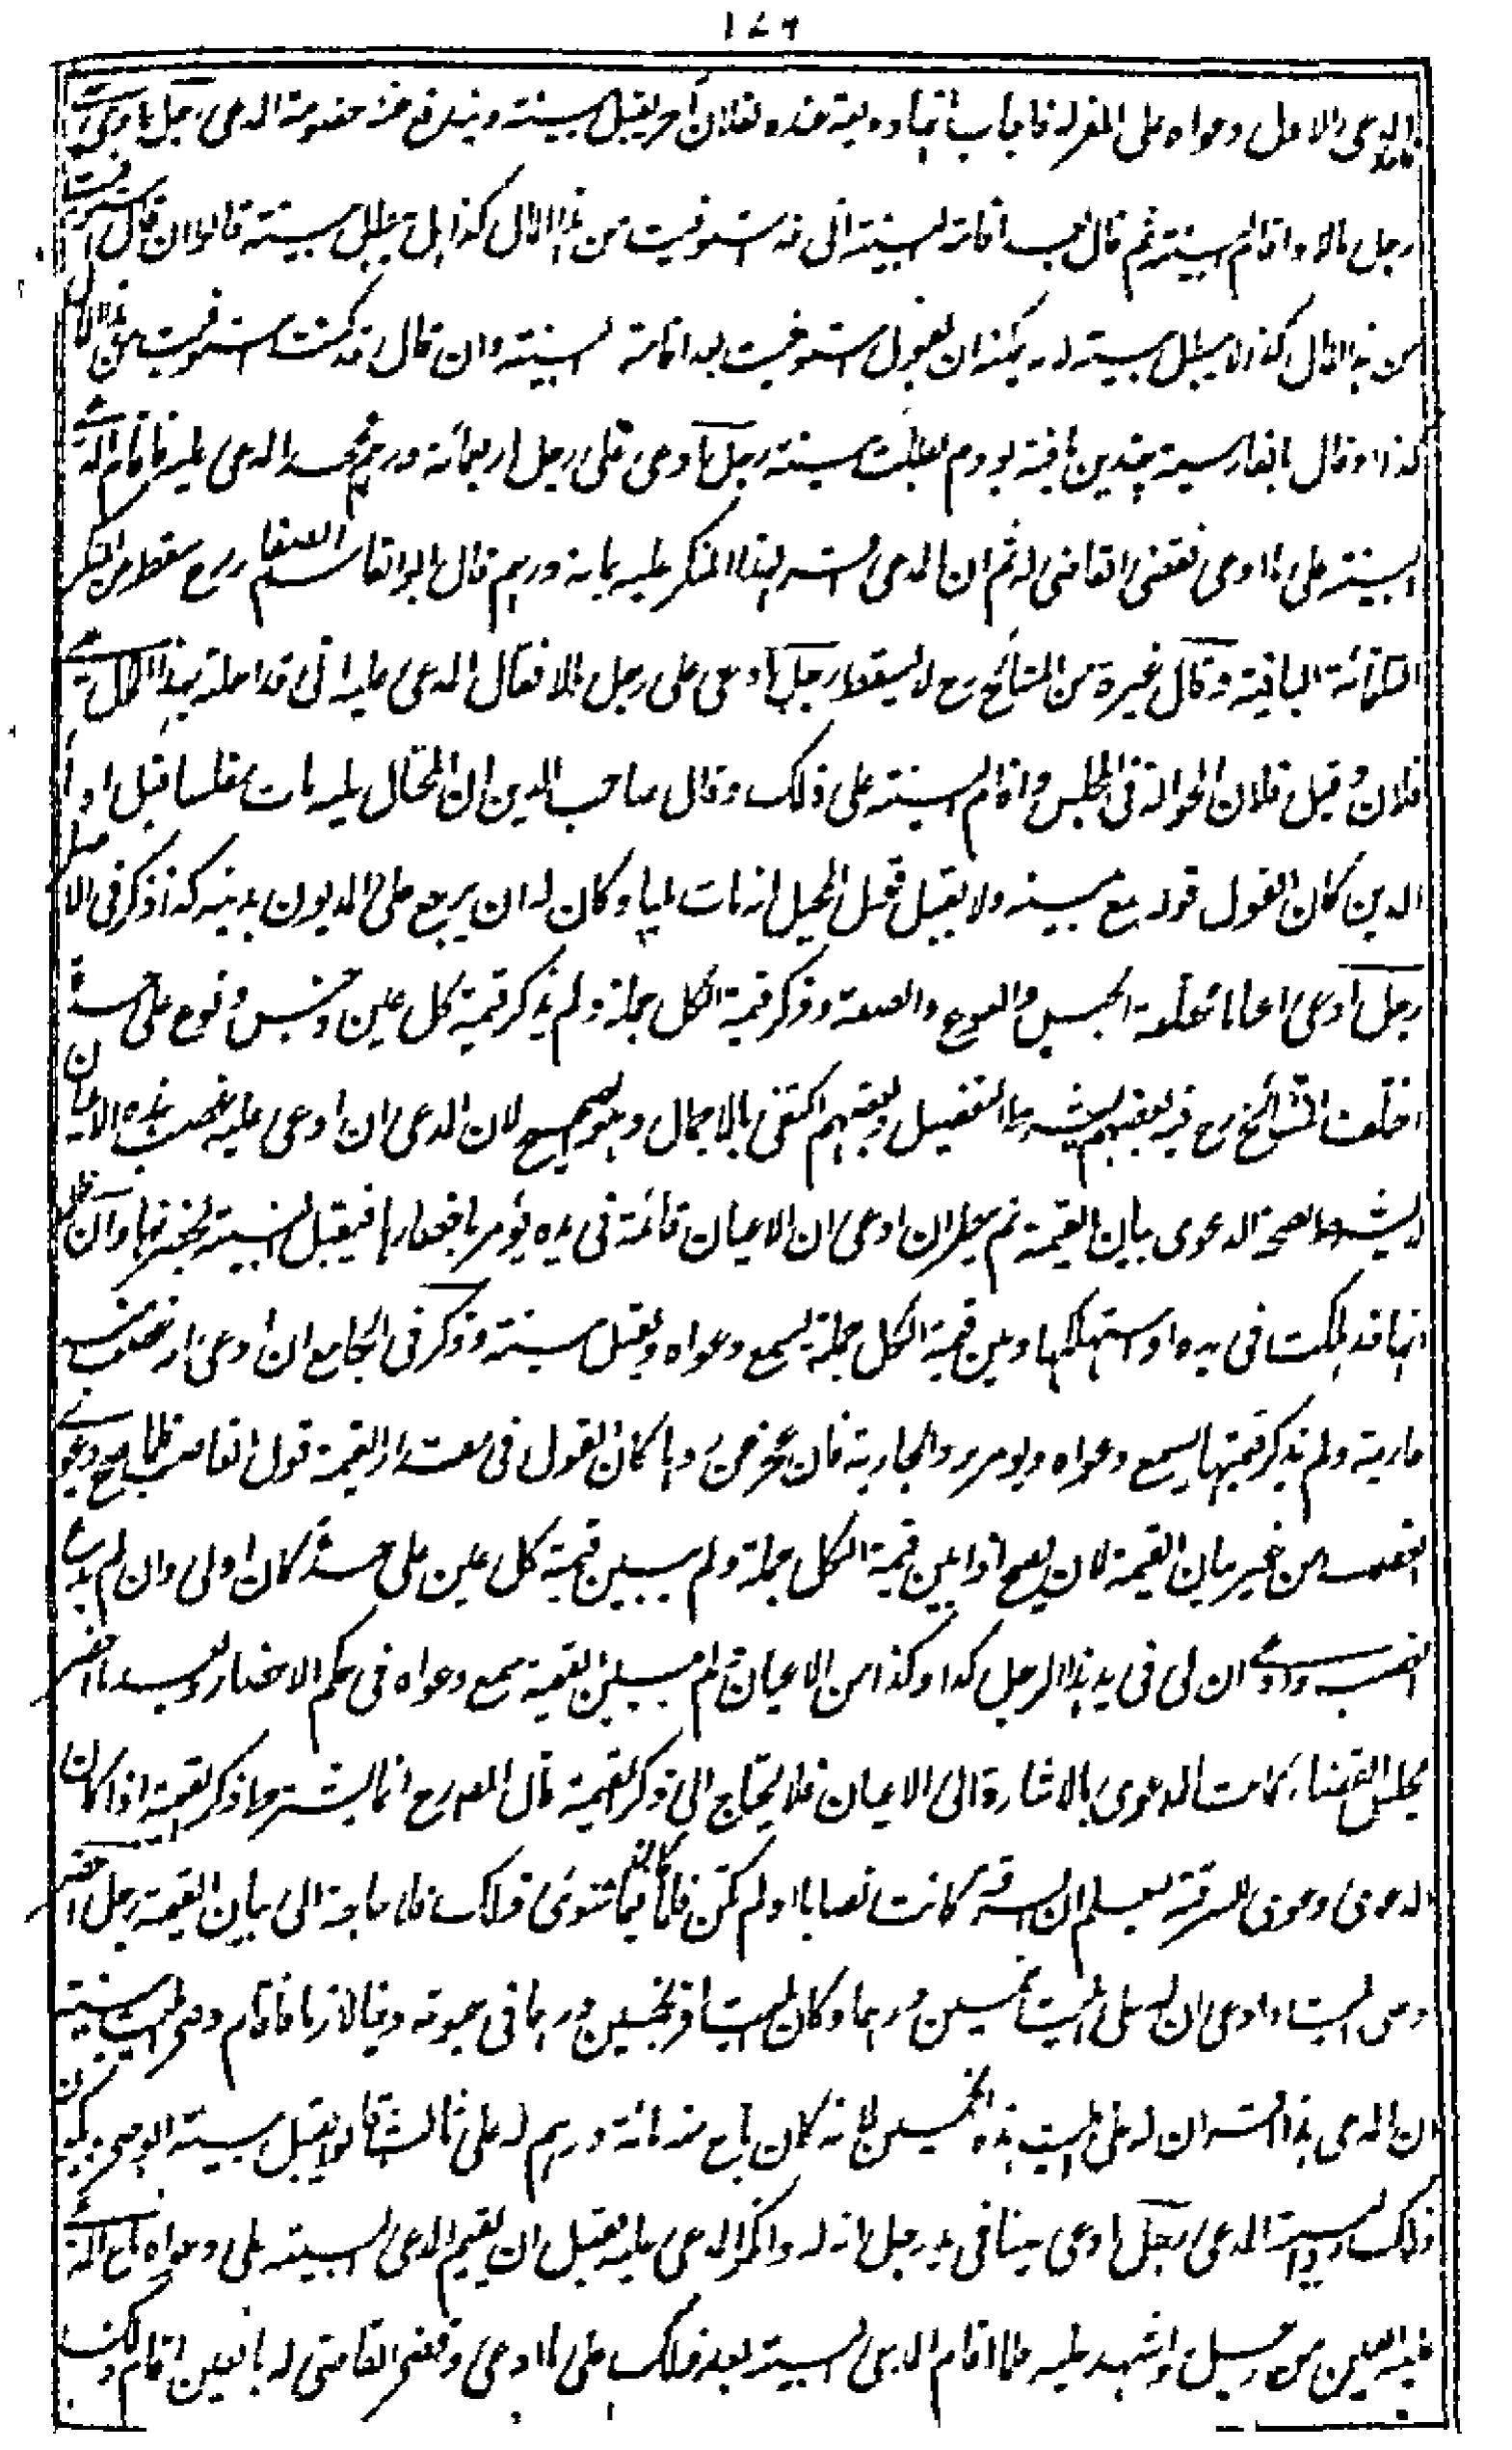 ١٧٩
المدعي الاول دعواه على المقر له فاجاب انها وديعة عنده لفلان آخر يقبل بينته ويندفع عنه خصومة المدعي رجل ادعى على
رجل مالا واقام البينة ثم قال بعد اقامة البينة اني قد استوفيت من هذا المال كذا هل يبطل بينته قالوا ان قال استوفيت
من هذا المال كذا لا يبطل بينته لانه يمكنه ان يقول استوفيت بعد اقامة البينة وان قال قد كنت استوفيت من هذا المال
كذا او قال بالفارسية چندين يافته بودم بطلت بينته رجل ادعى على رجل اربعمائة درهم فجحد المدعى عليه فاقام المدعي
البينة على ما ادعى فقضى القاضي له ثم ان المدعي اقر لهذا المنكر عليه بمائة درهم قال ابو القاسم الصفار رح سقط عن المنكر
الثلثمائة الباقية وقال غيره من المشائخ رح لا يسقط رجل ادعى على رجل مالا فقال المدعى عليه اني قد احلته بهذا المال على
فلان وقبل فلان الحوالة في المجلس واقام البينة على ذلك وقال صاحب الدين ان المحتال عليه مات مفلسا قبل اداء
الدين كان القول قوله مع يمينه ولا يقبل قول المحيل انه مات مليا وكان له ان يرجع على المديون بدينه كذا ذكر في الاصل
رجل ادعى اعيانا مختلفة الجنس والنوع والصفة وذكر قيمة الكل جملة ولم يذكر قيمة كل عين وجنس ونوع على حدة
اختلف المشائخ رح فيه بعضهم يشترط التفصيل وبعضهم اكتفى بالاجمال وهو الصحيح لان المدعي ان ادعى عليه غصب هذه الاعيان
لا يشترط لصحة الدعوى بيان القيمة ثم ينظر ان ادعى ان الاعيان قائمة في يده يؤمر باحضارها فيقبل البينة بحضرتها وان قال
انها قد هلكت في يده او استهلكها وبين قيمة الكل جملة يسمع دعواه ويقبل بينته وذكر في الجامع ان ادعى انه غصب منه
جارية ولم يذكر قيمتها يسمع دعواه ويؤمر برد الجارية فان عجز عن ردها كان القول في مقدار القيمة قول الغاصب فلما صح دعوى
الغصب من غير بيان القيمة لان يصح اذا بين قيمة الكل جملة ولم يبين قيمة كل عين على حدة كان اولى وان لم يدع
الغصب وادعى ان لي في يد هذا الرجل كذا وكذا من الاعيان ولم يبين القيمة يسمع دعواه في حكم الاحضار وبعدما احضر
مجلس القضاء كانت الدعوى بالاشارة الى الاعيان فلا يحتاج الى ذكر القيمة قال رح انما يشترط ذكر القيمة اذا كان
الدعوى دعوى السرقة ليعلم ان السرقة كانت نصابا او لم تكن فاما فيما سوى ذلك فلا حاجة الى بيان القيمة رجل احضر
وصي الميت وادعى ان له على الميت خمسين درهما وكان الميت اقر بخمسين درهما في حيوته دينا لازما فاقام وصي الميت بينة
ان المدعي هذا اقر ان له على الميت هذه الخمسين لانه كان باع منه مائة درهم له على ثالث قالوا يقبل بينة الوصي ويكون
ذلك بينة المدعي رجل ادعى عينا في يد رجل انه له وانكر المدعى عليه فقبل ان يقيم المدعي البينة على دعواه باع المدعى
عليه العين من رجل واشهد عليه فلما اقام المدعي البينة بعد ذلك على ما ادعى وقضى القاضي له بالعين اقام ذلك